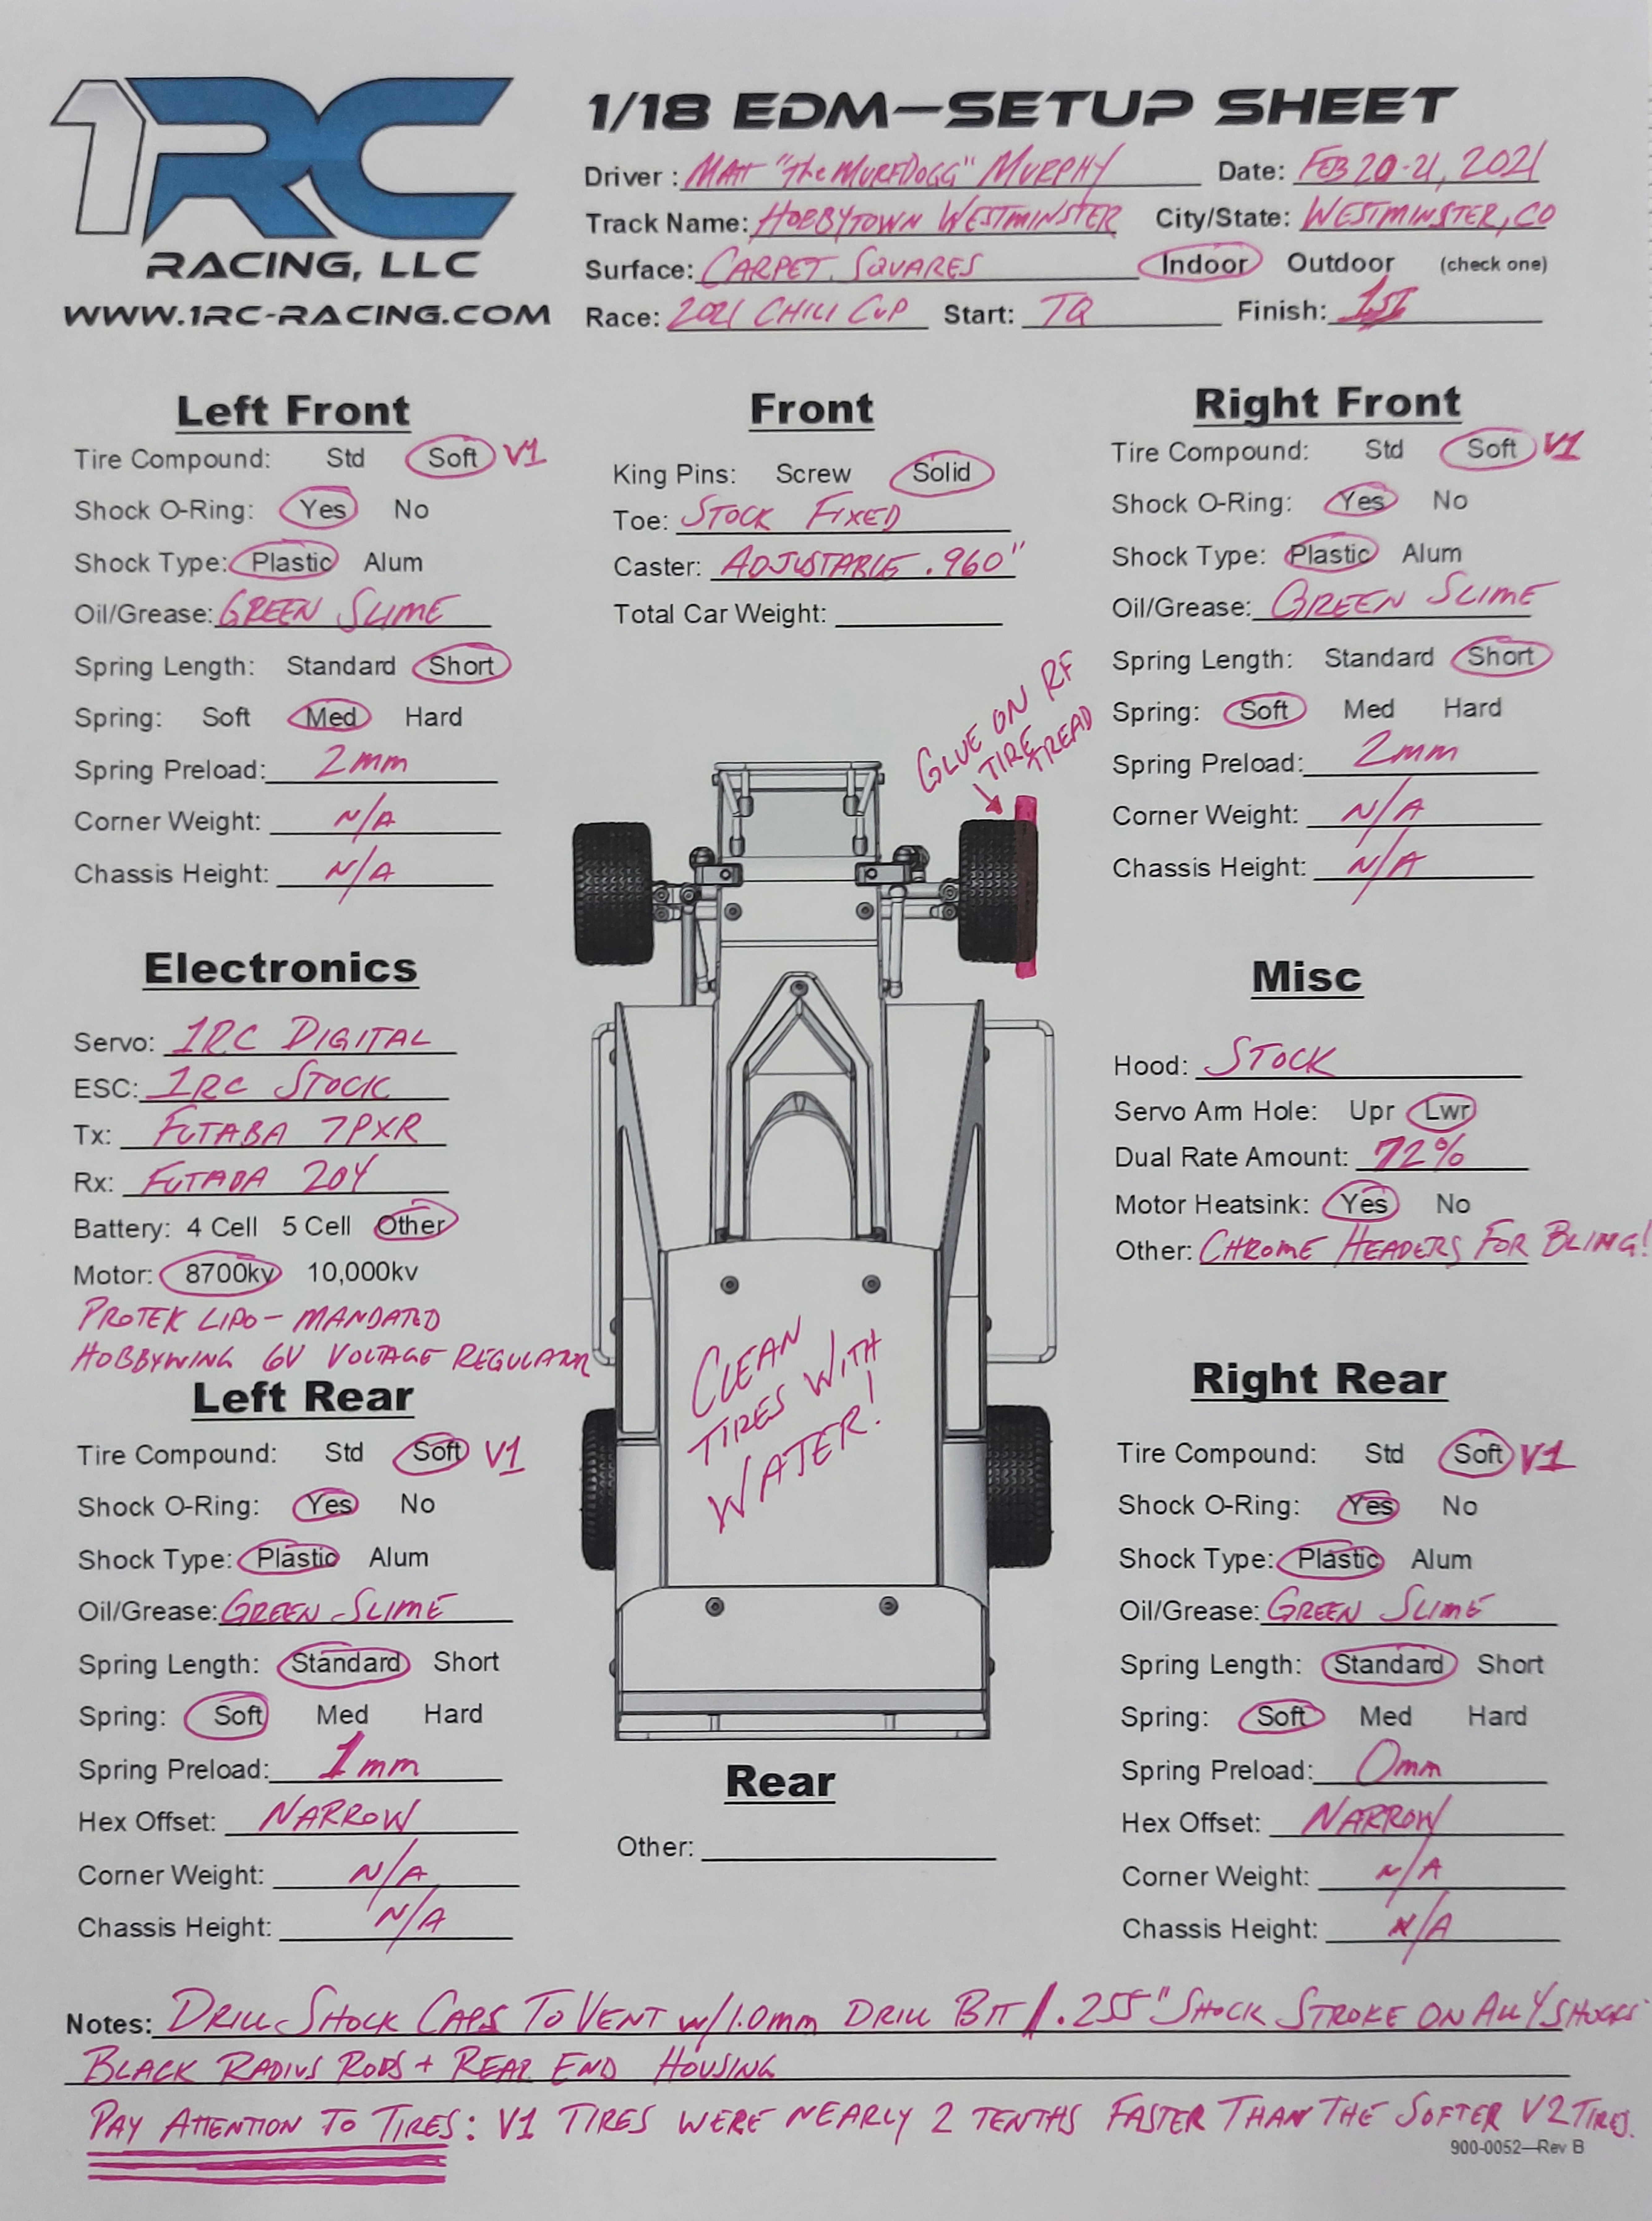 1RC
RACING, LLC
WWW.1RC-RACING.COM
1/18 EDM—SETUP SHEET
Driver: MATT "The MURFDOGG" MURPHY Date: FEB 20-21, 2021
Track Name: HOBBYTOWN WESTMINSTER City/State: WESTMINSTER, CO
Surface: CARPET SQUARES Indoor Outdoor (check one)
Race: 2021 CHILI CUP Start: TQ Finish: 1ST
Left Front
Tire Compound: Std Soft V1
Shock O-Ring: Yes No
Shock Type: Plastic Alum
Oil/Grease: GREEN SLIME
Spring Length: Standard Short
Spring: Soft Med Hard
Spring Preload: 2mm
Corner Weight: N/A
Chassis Height: N/A
Front
King Pins: Screw Solid
Toe: STOCK FIXED
Caster: ADJUSTABLE .960"
Total Car Weight:
Right Front
Tire Compound: Std Soft V1
Shock O-Ring: Yes No
Shock Type: Plastic Alum
Oil/Grease: GREEN SLIME
Spring Length: Standard Short
Spring: Soft Med Hard
Spring Preload: 2mm
Corner Weight: N/A
Chassis Height: N/A
GLUE ON RF
TIRE TREAD
Electronics
Servo: 1RC DIGITAL
ESC: 1RC STOCK
Tx: FUTABA 7PXR
Rx: FUTABA 204
Battery: 4 Cell 5 Cell Other
Motor: 8700kv 10,000kv
PROTEK LIPO - MANDATED
HOBBYWING 6V VOLTAGE REGULATOR
Misc
Hood: STOCK
Servo Arm Hole: Upr Lwr
Dual Rate Amount: 72%
Motor Heatsink: Yes No
Other: CHROME HEADERS FOR BLING!
CLEAN
TIRES WITH
WATER!
Left Rear
Tire Compound: Std Soft V1
Shock O-Ring: Yes No
Shock Type: Plastic Alum
Oil/Grease: GREEN SLIME
Spring Length: Standard Short
Spring: Soft Med Hard
Spring Preload: 1mm
Hex Offset: NARROW
Corner Weight: N/A
Chassis Height: N/A
Rear
Other:
Right Rear
Tire Compound: Std Soft V1
Shock O-Ring: Yes No
Shock Type: Plastic Alum
Oil/Grease: GREEN SLIME
Spring Length: Standard Short
Spring: Soft Med Hard
Spring Preload: 0mm
Hex Offset: NARROW
Corner Weight: N/A
Chassis Height: N/A
Notes: DRILL SHOCK CAPS TO VENT w/1.0mm DRILL BIT / .255" SHOCK STROKE ON ALL 4 SHOCKS
BLACK RADIUS RODS + REAR END HOUSING
PAY ATTENTION TO TIRES: V1 TIRES WERE NEARLY 2 TENTHS FASTER THAN THE SOFTER V2 TIRES.
900-0052—Rev B